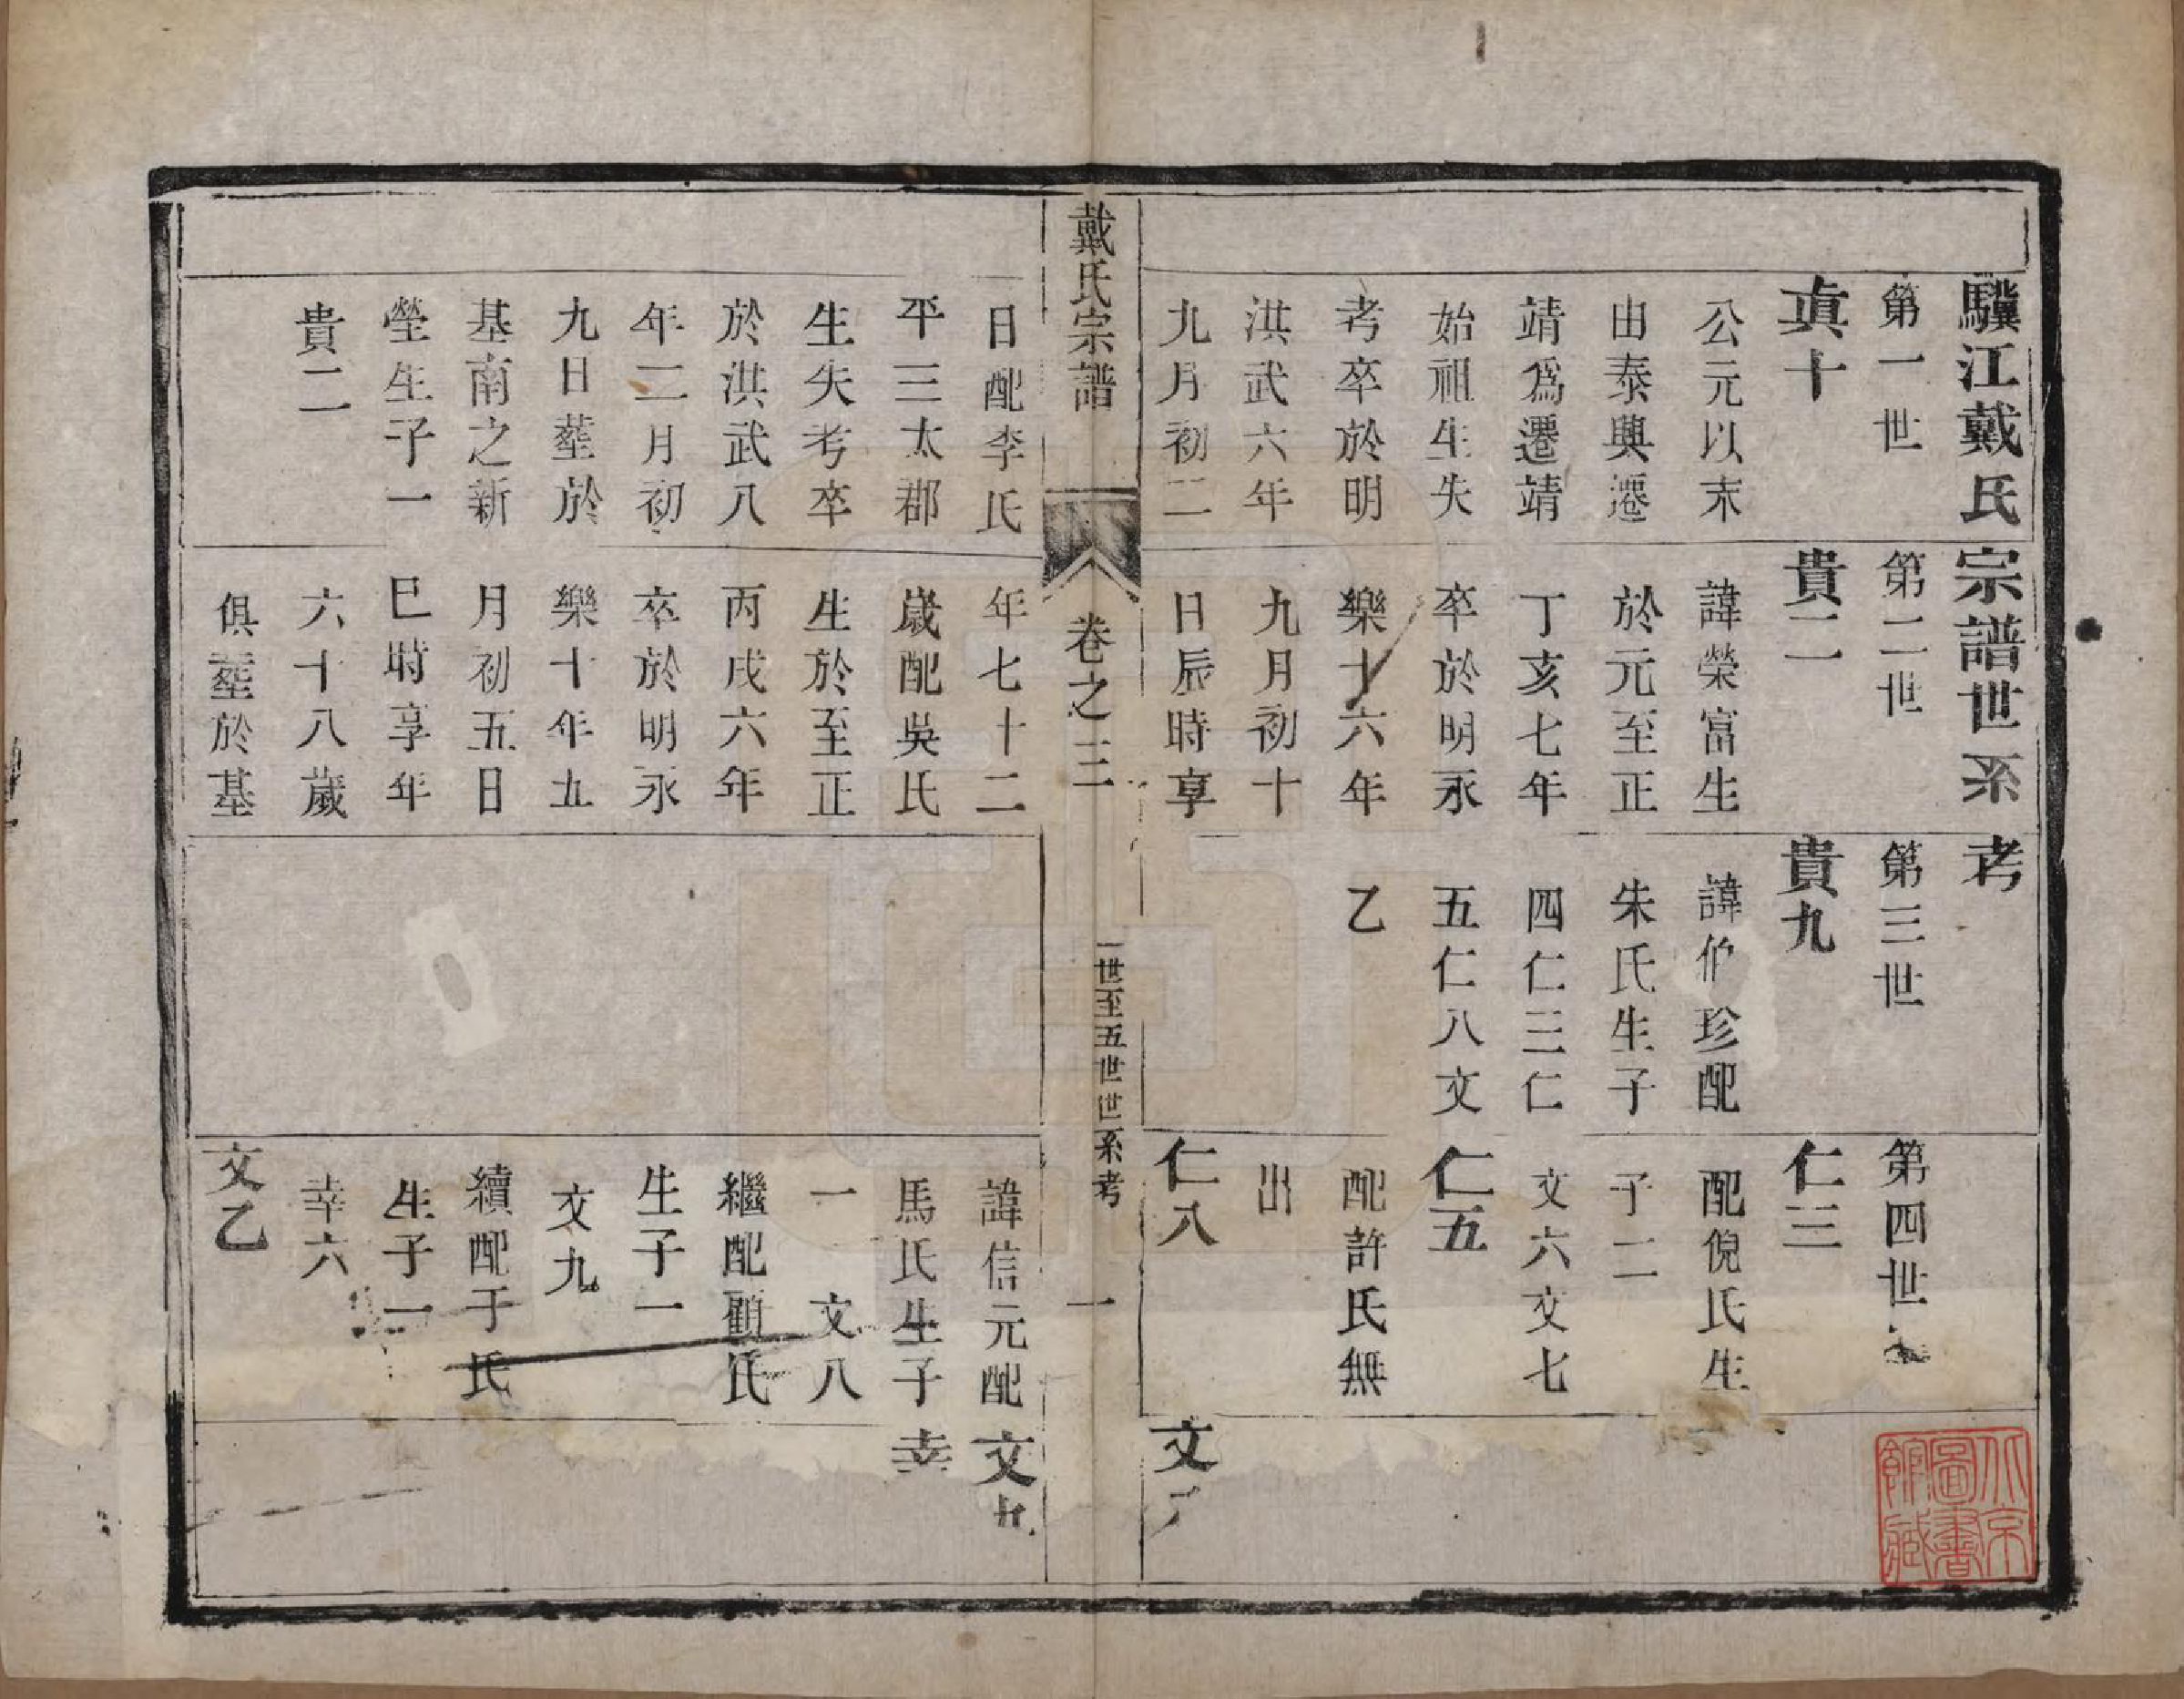 驥江戴氏宗譜世系考
第一世
真十
公元以末
由泰興遷
靖爲遷靖
始祖生失
考卒於明
洪武六年
九月初二
第二世
貴二
諱榮富生
於元至正
丁亥七年
卒於明永
樂十六年
九月初十
日辰時享
第三世
貴九
諱伯珍配
朱氏生子
四仁三仁
五仁八文
乙
第四世
仁三
配倪氏生
子二
文六文七
仁五
配許氏無
出
仁八
文
戴氏宗譜
卷之三
一世至五世世系考
一
日配李氏
平三太郡
生失考卒
於洪武八
年二月初
九日塟於
基南之新
塋生子一
貴二
年七十二
歲配吳氏
生於至正
丙戌六年
卒於明永
樂十年五
月初五日
巳時享年
六十八歲
俱塟於基
諱信元配
馬氏生子
一 文八
繼配顧氏
生子一
文九
續配于氏
生子一
幸六
文乙
文九
幸
北京圖書館藏